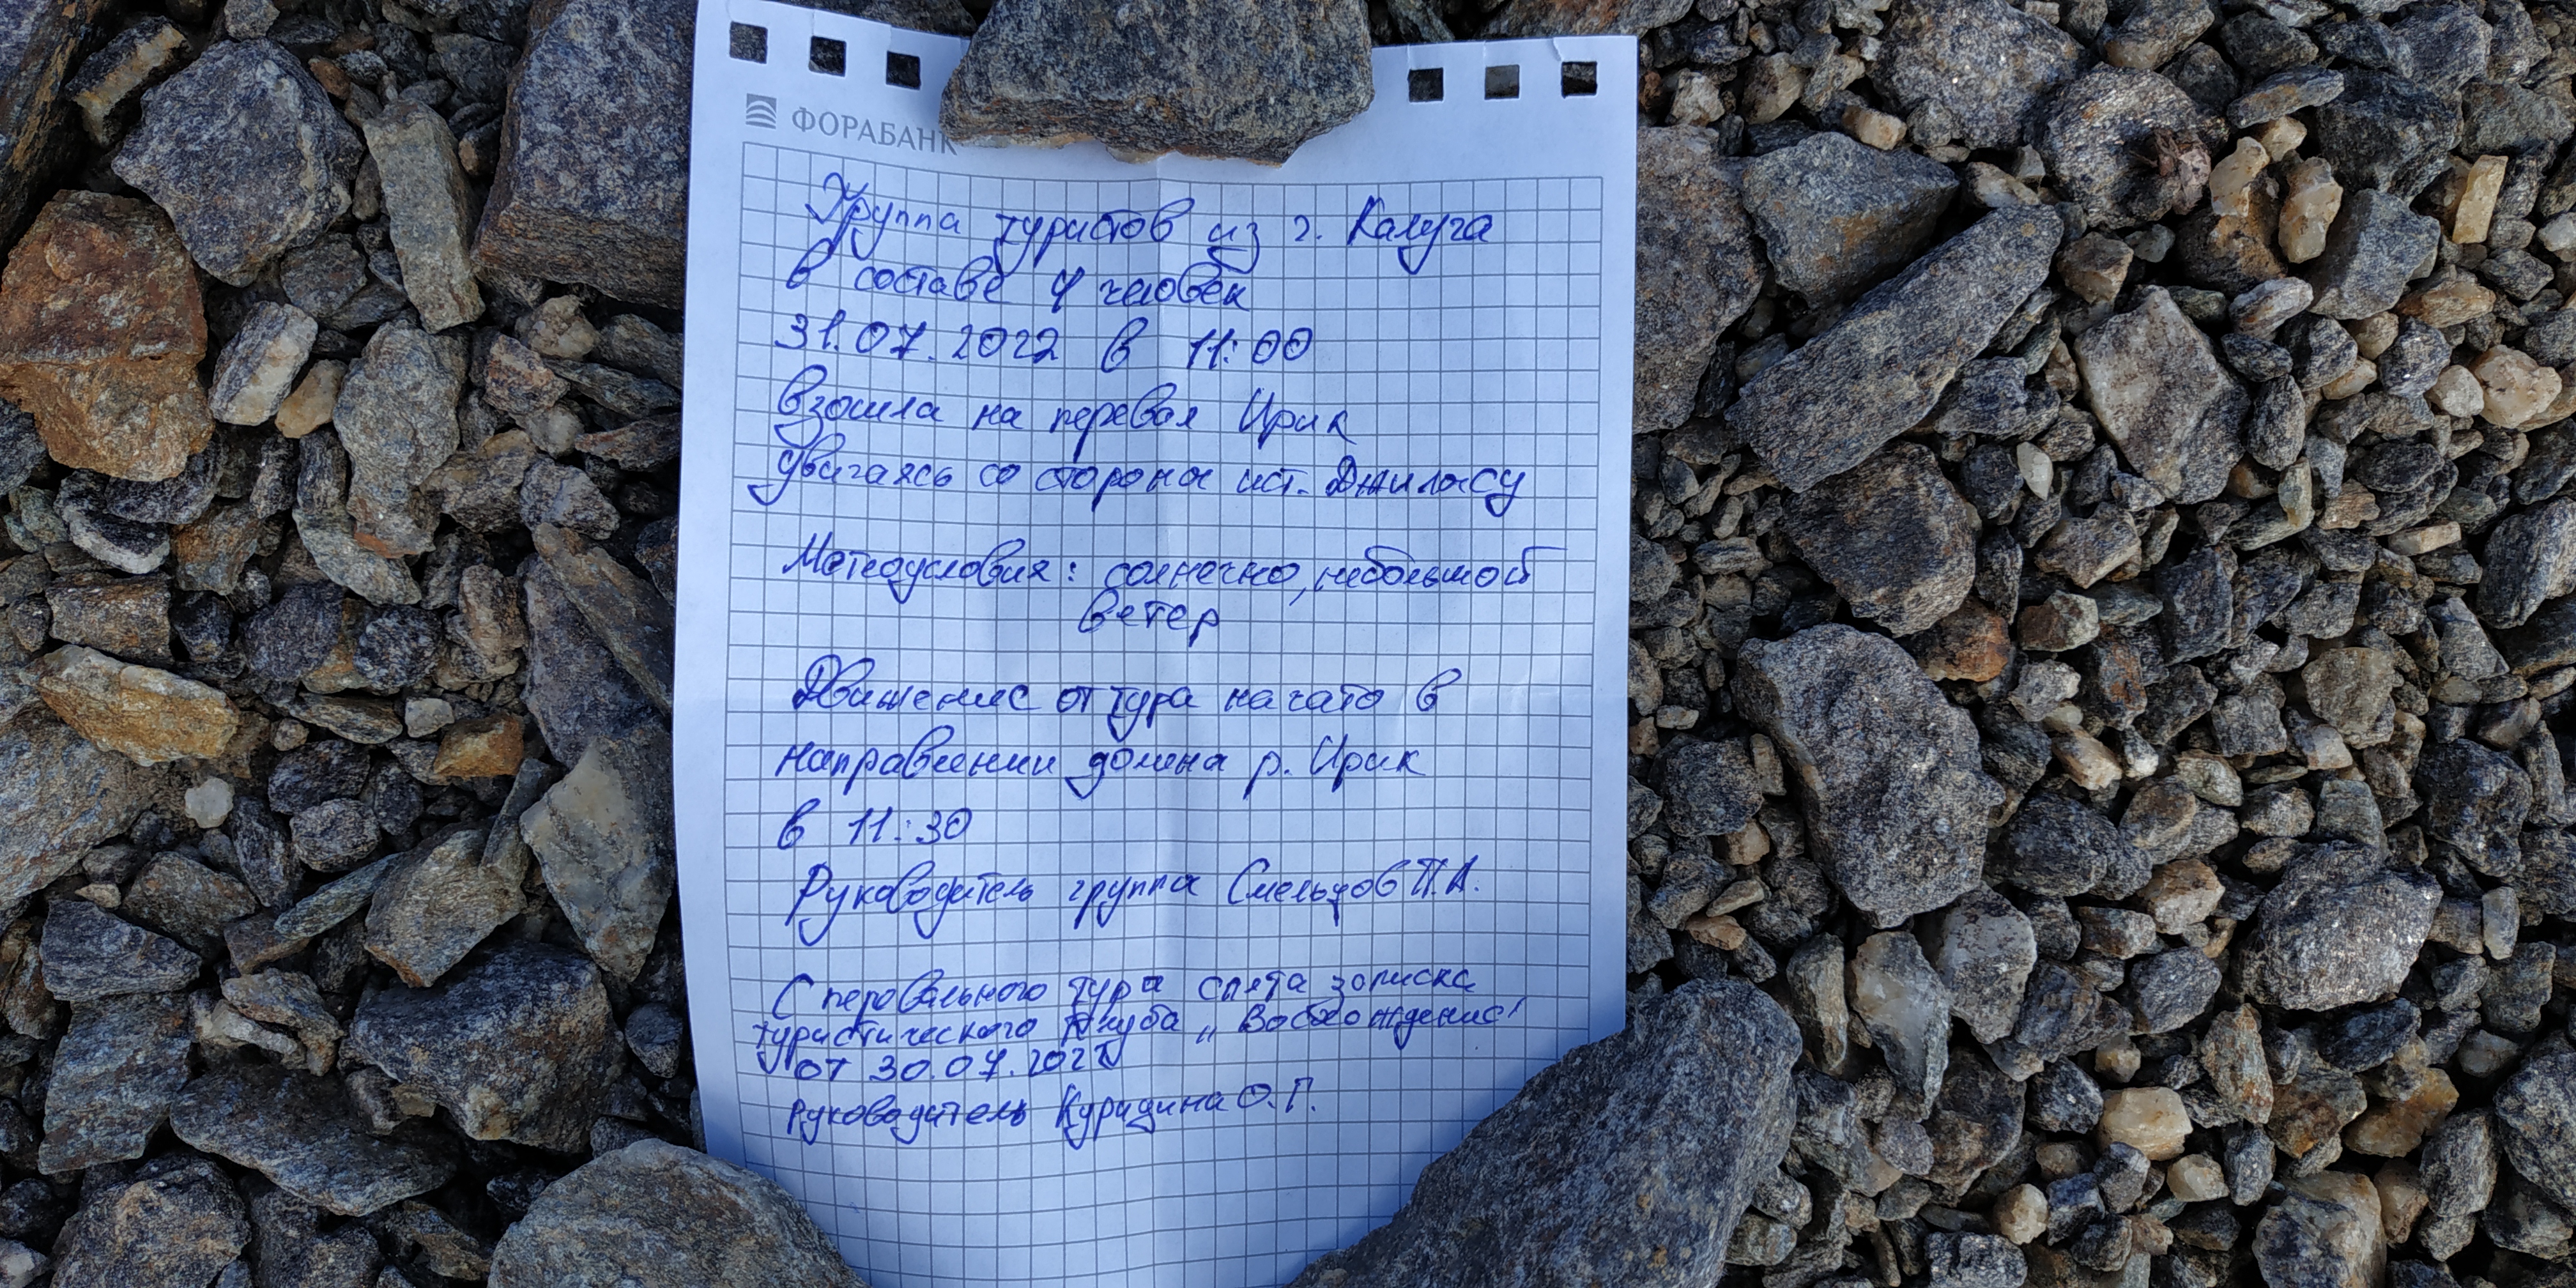 ФОРАБАНК
Группа туристов из г. Калуга
в составе 4 человек
31.07.2022 в 11:00
взошла на перевал Ирик
двигаясь со стороны ист. Джилысу
Метеоусловия: солнечно, небольшой
ветер
Движение от тура начато в
направлении долины р. Ирик
в 11:30
Руководитель группы Смельцов П.А.
С перевального тура снята записка
туристического клуба „Восхождение"
от 30.07.2022
руководитель Куридина О.Г.